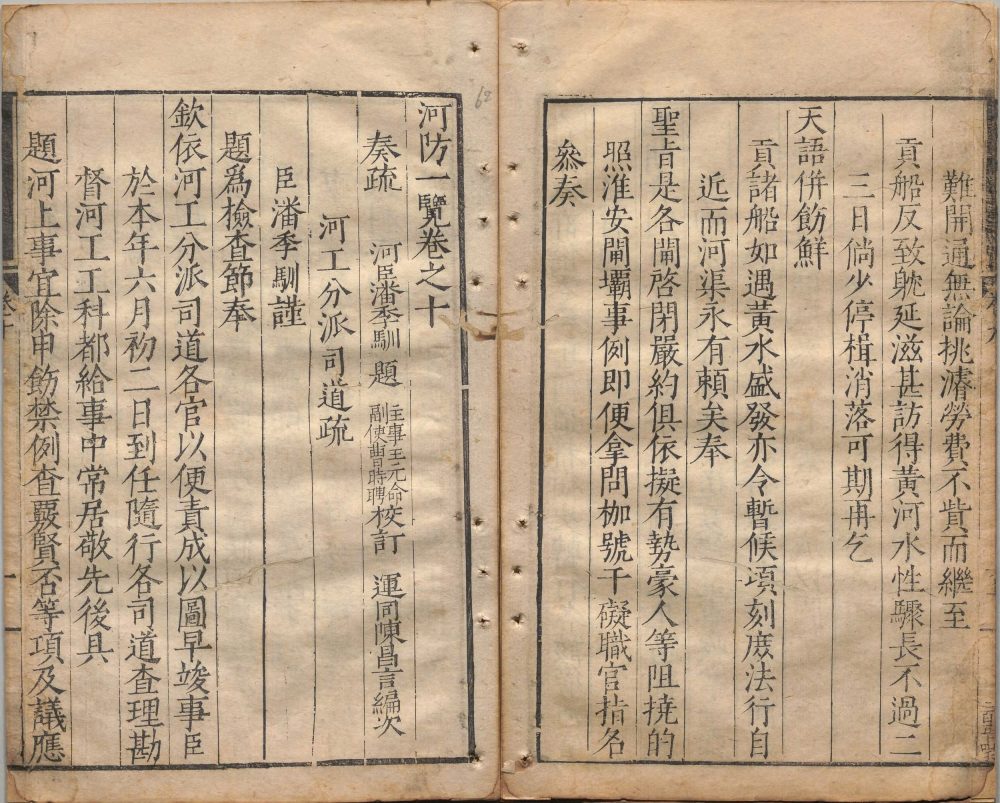 難開通無論挑濬勞費不貲而繼至
貢船反致躭延滋甚訪得黃河水性驟長不過二
三日倘少停楫消落可期再乞
天語併飭鮮
貢諸船如遇黃水盛發亦令暫候項刻庻法行自
近而河渠永有賴矣奉
聖旨是各閘啓閉嚴約俱依擬有勢豪人等阻撓的
照淮安閘壩事例即便拿問枷號干礙職官指名
叅奏
河防一覽卷之十
奏疏 河臣潘季馴 題 主事王元命 副使曹時聘 校訂 運同陳昌言編次
河工分派司道疏
臣潘季馴謹
題爲檢查節奉
欽依河工分派司道各官以便責成以圖早竣事臣
於本年六月初二日到任隨行各司道查理勘
督河工工科都給事中常居敬先後具
題河上事宜除申飭禁例查覈賢否等項及議應